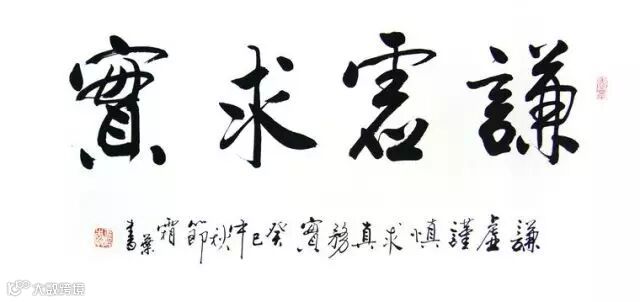 謙虛求實
謙虛謹慎求真務實癸巳中秋節 葉書
大数跨境